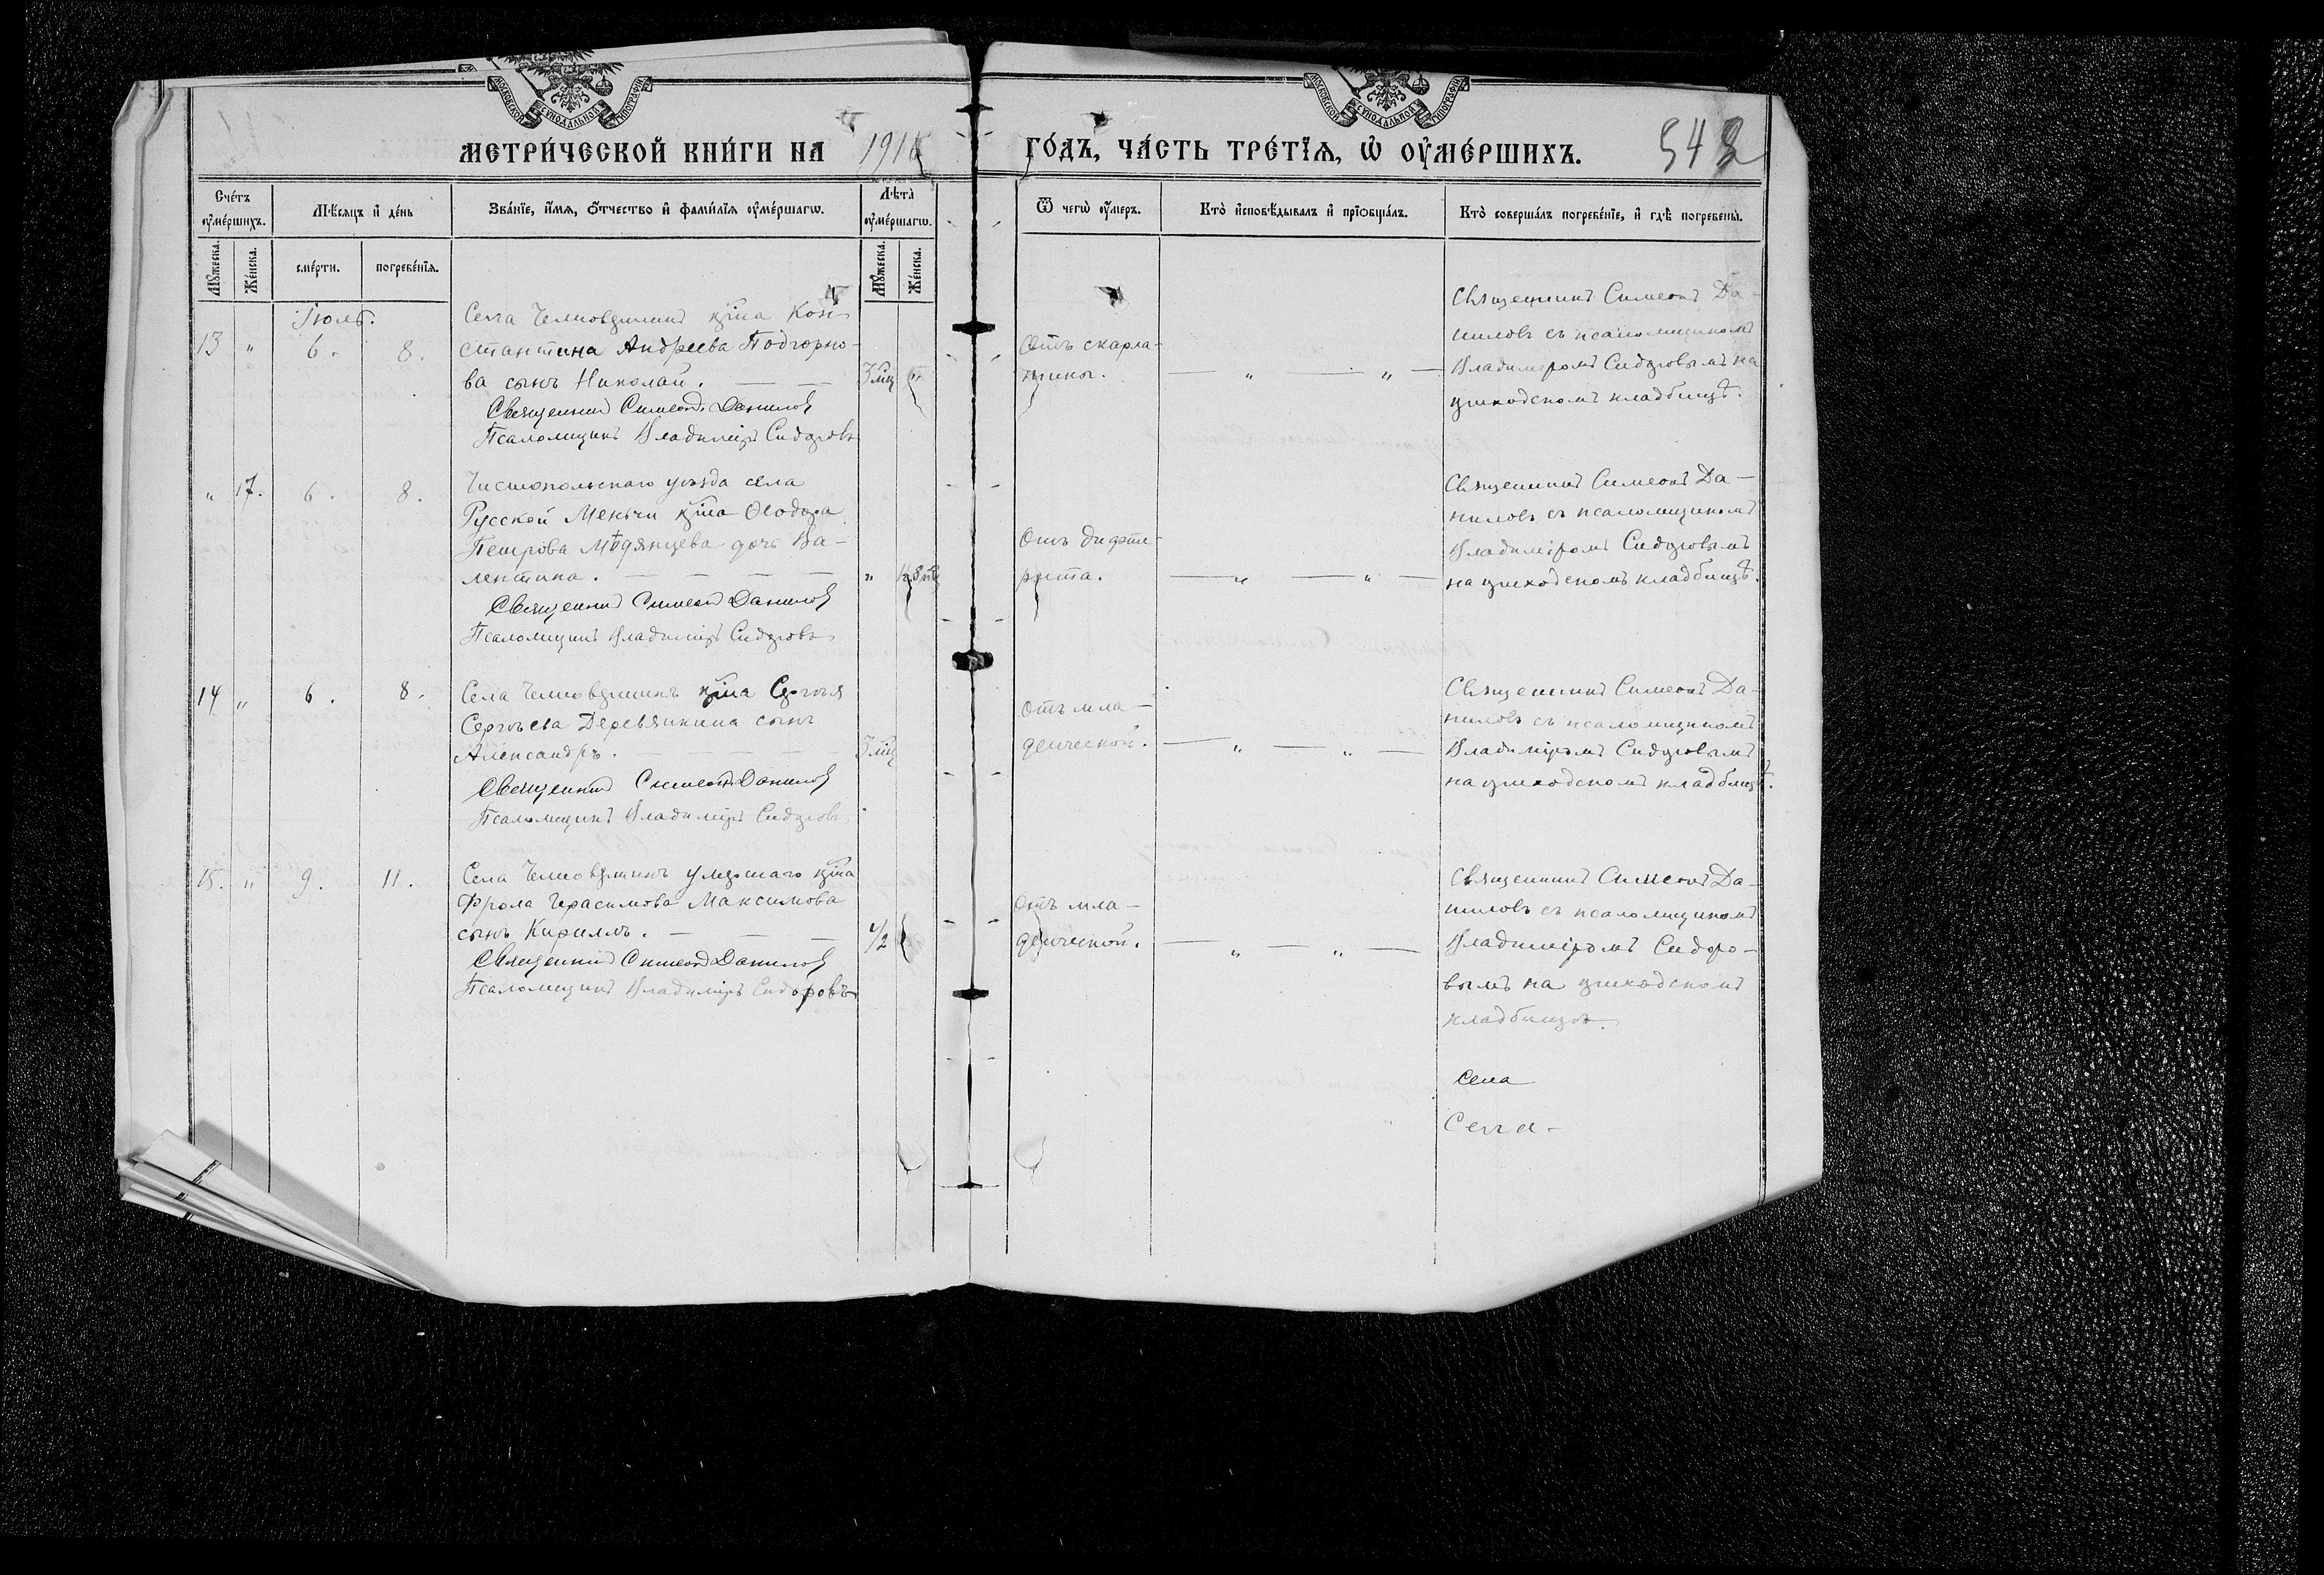 МОСКОВСКОЙ СѴНОДАЛЬНОЙ ТИПОГРАФІИ
МОСКОВСКОЙ СѴНОДАЛЬНОЙ ТИПОГРАФІИ
МЕТРИ́ЧЕСКОЙ КНИ́ГИ НА 191
ГО́ДЪ, ЧА́СТЬ ТРЕ́ТЇѦ, Ѡ ОУМЕ́РШИХЪ.
54
Сче́тъ оумершихъ.
Мѣсяцъ и де́нь
Зва́нїе, и́мѧ, ѻ́тчество и фами́лїѧ оуме́ршагѡ.
Лѣта̀ оуме́ршагѡ.
Ѿ чегѡ̀ оу́меръ.
Кто̀ и҆сповѣ́дывалъ и҆ прїѡбща́лъ.
Кто̀ соверша́лъ погребе́нїе, и҆ гдѣ̀ погребены̀.
Мꙋжеска.
Же́нска.
сме́рти.
погребе́нїѧ.
Мꙋжеска.
Же́нска.
Іюль.
13 " 6. 8.
Села Челновершинъ кр̃на Кон-
стантина Андреева Подгорно-
ва сынъ Николай. — —
3 мц "
Священникъ Симеонъ Даниловъ
Псаломщикъ Владиміръ Сидоровъ
Отъ скарла-
тины.
— " — " —
Священникъ Симеонъ Да-
ниловъ съ псаломщикомъ
Владиміромъ Сидоровымъ на
приходскомъ кладбищѣ.
" 17. 6. 8.
Чистопольскаго уѣзда села
Русской Менчи кр̃на Ѳеодора
Петрова Мѣдянцева дочь Ва-
лентина. — — — —
"
Священникъ Симеонъ Даниловъ
Псаломщикъ Владиміръ Сидоровъ
Отъ дифте-
рита.
— " — " —
Священникъ Симеонъ Да-
ниловъ съ псаломщикомъ
Владиміромъ Сидоровымъ
на приходскомъ кладбищѣ.
14 " 6. 8.
Села Челновершинъ кр̃на Сергѣя
Сергѣева Деревяшкина сынъ
Александръ. — — — —
3 мц
Священникъ Симеонъ Даниловъ
Псаломщикъ Владиміръ Сидоровъ
Отъ мла-
денческой.
— " — " —
Священникъ Симеонъ Да-
ниловъ съ псаломщикомъ
Владиміромъ Сидоровымъ
на приходскомъ кладбищѣ.
15. " 9. 11.
Села Челновершинъ умершаго кр̃на
Фрола Герасимова Максимова
сынъ Кириллъ. — — —
1/2
Священникъ Симеонъ Даниловъ
Псаломщикъ Владиміръ Сидоровъ
Отъ мла-
денческой.
— " — " —
Священникъ Симеонъ Да-
ниловъ съ псаломщикомъ
Владиміромъ Сидоро-
вымъ на приходскомъ
кладбищѣ.
Села
Села-